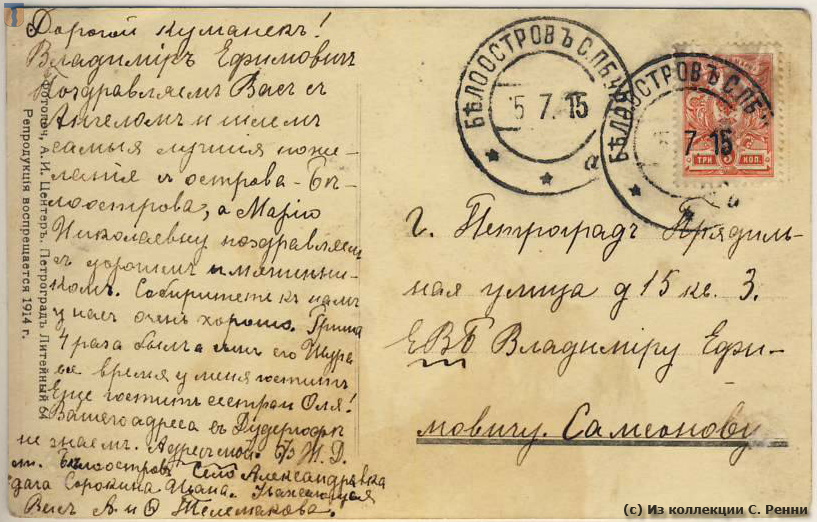 Дорогой куманекъ!
Владиміръ Ефимовичъ
Поздравляемъ Васъ съ
Ангеломъ и шлемъ
самыя лучшія поже-
ланія съ острова - Бѣ-
лоострова, а Марію
Николаевну поздравляемъ
съ дорогимъ имянинни-
комъ. Собиритесь къ намъ
у насъ очень хорошо. Гриша
4 раза былъ а его Шура
все время у меня гоститъ
Еще гоститъ сестра Оля!
Вашего адреса въ Дудергофѣ
не знаемъ. Адресъ мой: Ф. Ж. Д.
ст. Бѣлоостровъ Село Александровка
дача Сорокина Ивана. Уважающая
Васъ А. и Ѳ Телемакова.
Фототипія, А. И. Центеръ. Петроградъ Литейный 64
Репродукція воспрещается 1914 г.
БѢЛООСТРОВЪ С.ПБЧ.
5 7. 15
а
БѢЛООСТРОВЪ С.ПБЧ.
7 15
а
ТРИ 3 КОП.
г. Петроградъ Прядиль-
ная улица д 15 кв. 3.
ЕВБ Владиміру Ефи-
мовичу. Самсонову
(с) Из коллекции С. Ренни